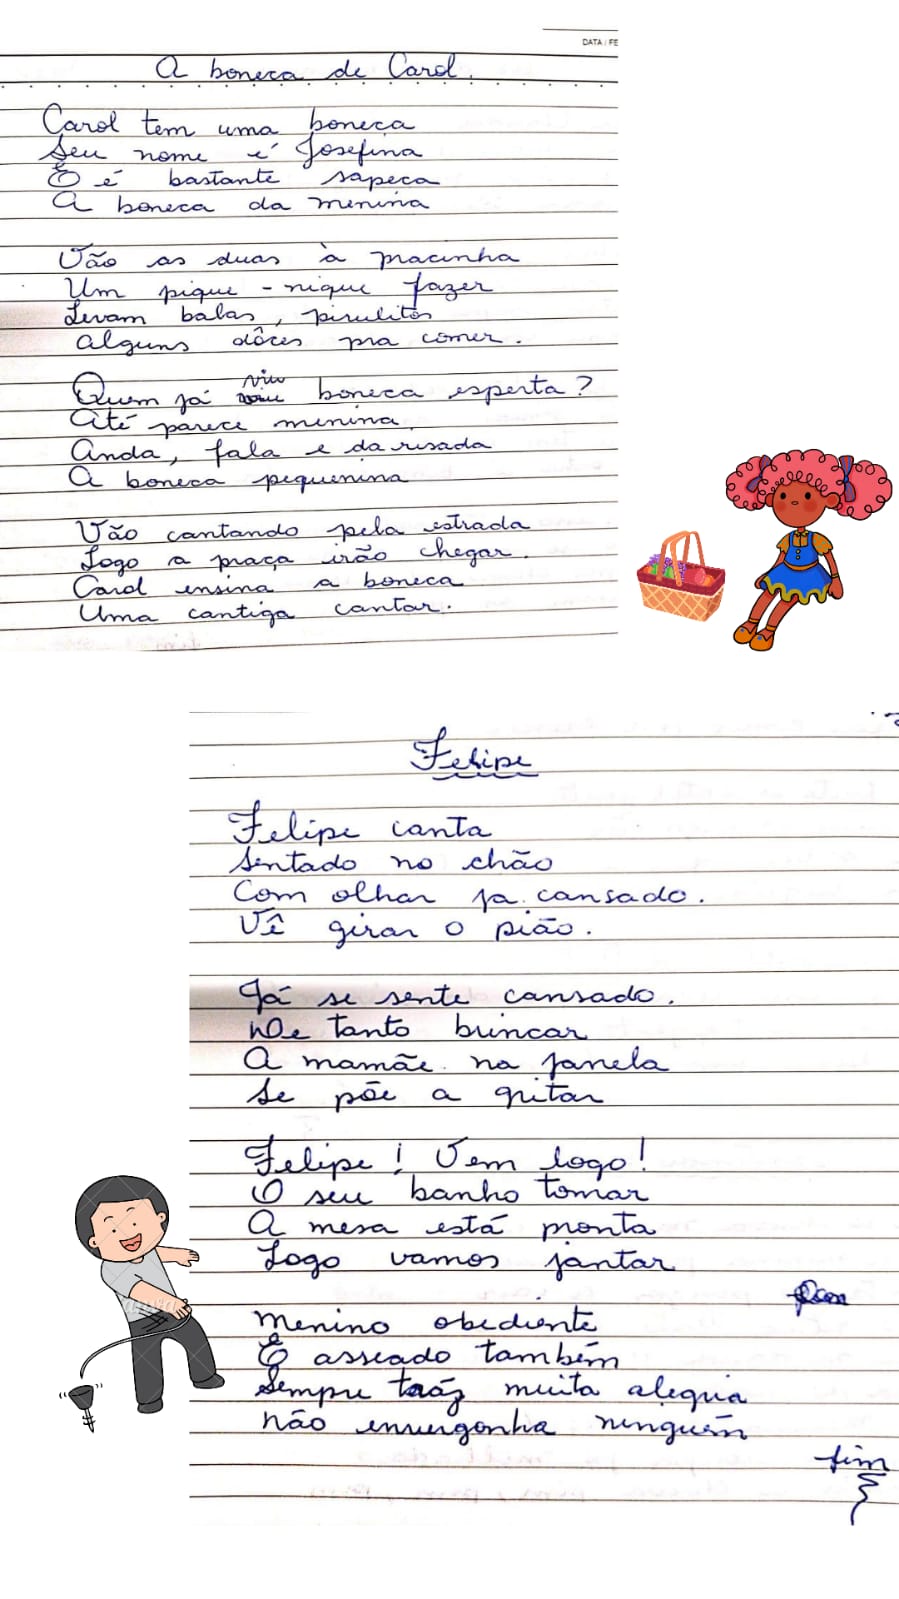 DATA / FE
A boneca de Carol.
Carol tem uma boneca
Seu nome é Josefina
E é bastante sapeca
A boneca da menina
Vão as duas à pracinha
Um pique-nique fazer
Levam balas, pirulitos
Alguns dôces pra comer.
viu
Quem já boneca esperta?
Até parece menina.
Anda, fala e da risada
A boneca pequenina
Vão cantando pela estrada
Logo a praça irão chegar.
Carol ensina a boneca
Uma cantiga cantar.
Felipe
Felipe canta
Sentado no chão
Com olhar ja cansado.
Vê girar o pião.
Já se sente cansado.
De tanto brincar
A mamãe na janela
Se põe a gritar
Felipe! Vem logo!
O seu banho tomar
A mesa está pronta
Logo vamos jantar
Menino obediente
E asseado também
Sempre traz muita alegria
não envergonha ninguém
fim